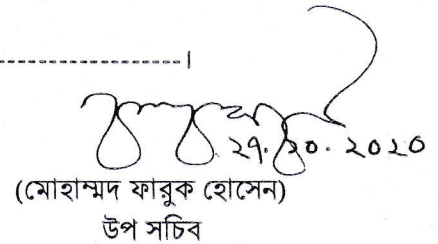 -----------------------------।
২৭.১০.২০২০
(মোহাম্মদ ফারুক হোসেন)
উপ সচিব